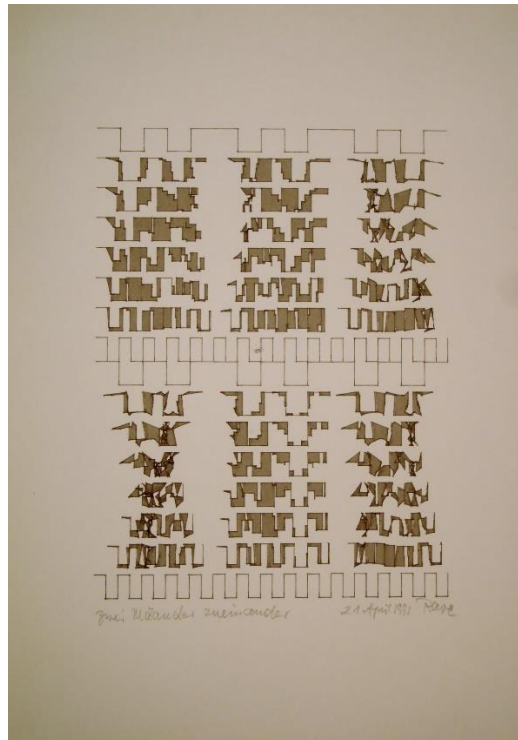 zwei Mäander zueinander 21. April 1991